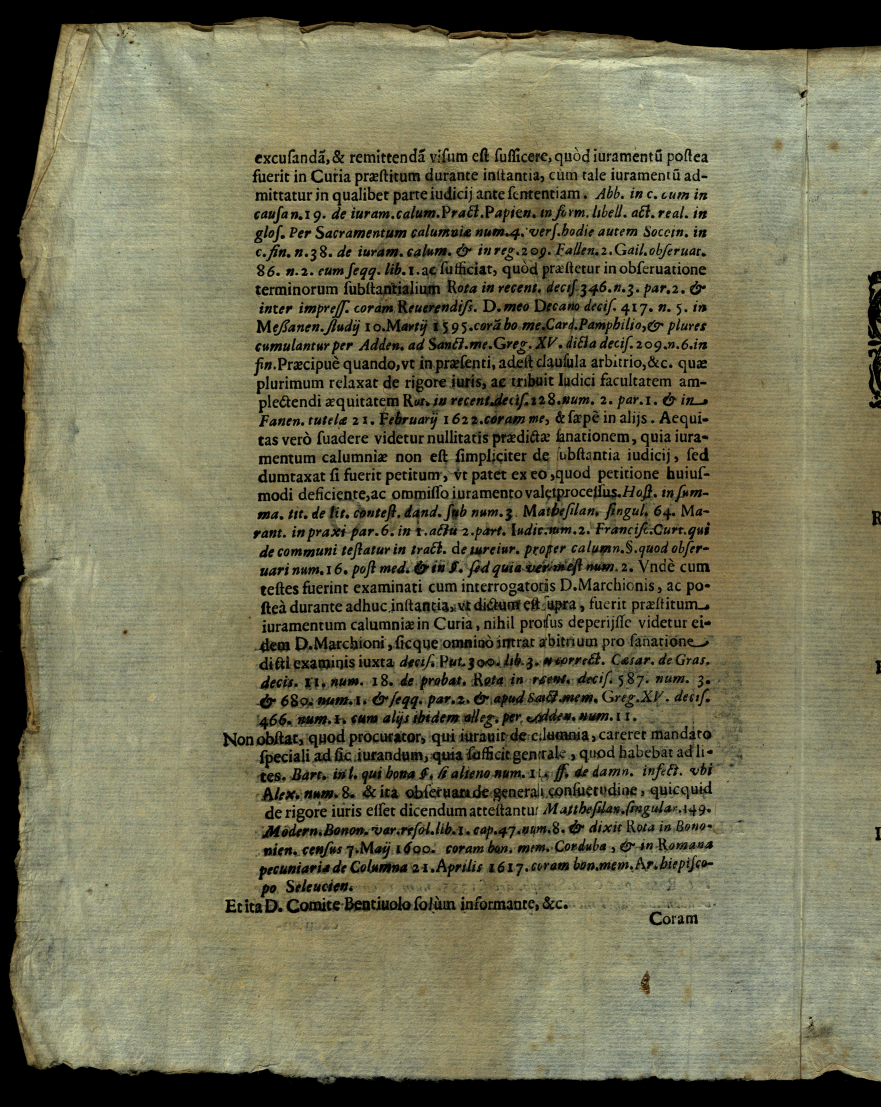 excuſandã, & remittendã viſum eſt ſufficere, quòd iuramentũ poſtea
fuerit in Curia præſtitum durante inſtantia, cùm tale iuramentũ ad-
mittatur in qualibet parte iudicij ante ſententiam. Abb. in c. cum in
cauſa n.19. de iuram.calum.Pract.Papien. in form. libell. act. real. in
gloſ. Per Sacramentum calumniæ num.4. verſ.hodie autem Soccin. in
c.fin. n.38. de iuram. calum. & in reg.209. Fallen.2.Gail.obſeruat.
86. n.2. cum ſeqq. lib.1.ac ſufficiat, quòd præſtetur in obſeruatione
terminorum ſubſtantialium Rota in recent. deciſ.346.n.3. par.2. &
inter impreſſ. coram Reuerendiſs. D. meo Decano deciſ. 417. n. 5. in
Meſſanen.ſtudij 10.Martij 1595.corã bo me.Card.Pamphilio,& plures
cumulantur per Adden. ad Sanct.me.Greg. XV. dicta deciſ.209.n.6.in
fin.Præcipuè quando,vt in præſenti, adeſt clauſula arbitrio,&c. quæ
plurimum relaxat de rigore iuris, ac tribuit Iudici facultatem am-
plectendi æquitatem Rot. in recent.deciſ.128.num. 2. par.1. & in
Fanen. tutelæ 21. Februarij 1622.coram me, & ſæpè in alijs. Aequi-
tas verò ſuadere videtur nullitatis prædictæ ſanationem, quia iura-
mentum calumniæ non eſt ſimpliciter de ſubſtantia iudicij, ſed
dumtaxat ſi fuerit petitum, vt patet ex eo, quod petitione huiuſ-
modi deficiente,ac ommiſſo iuramento valet proceſſus.Hoſt. in ſum-
ma. tit. de lit. conteſt. dand. ſub num.3 Matheſilan. ſingul. 64. Ma-
rant. in praxi par.6. in 1.actu 2.part. Iudic.num.2. Franciſc.Curt.qui
de communi teſtatur in tract. de iureiur. proper calumn.§.quod obſer-
uari num.16. poſt med. & in §. ſed quia verum eſt num.2. Vndè cum
teſtes fuerint examinati cum interrogatoris D.Marchionis, ac po-
ſteà durante adhuc inſtantia, vt dictum eſt ſupra, fuerit præſtitum
iuramentum calumniæ in Curia, nihil proſus deperijſſe videtur ei-
dem D.Marchioni, ſicque omninò intrat arbitrium pro ſanatione
dicti examinis iuxta deciſ. Put.300. lib.3. incorrect. Cæsar. de Graſ.
decis. 11. num. 18. de probat. Rota in recent. deciſ. 587. num. 3.
& 680. num.1. & ſeqq. par.2. & apud Sanct.mem. Greg.XV. deciſ.
466. num.1. cum alijs ibidem alleg. per Adden. num.11.
Non obſtat, quod procurator, qui iurauit de calumnia, careret mandato
ſpeciali ad ſic iurandum, quia ſufficit generale, quod habebat ad li-
tes. Bart. in l. qui bona §. ſi alieno num. ff. de damn. infect. vbi
Alex. num. 8. & ita obſeruari de generali conſuetudine, quicquid
de rigore iuris eſſet dicendum atteſtantur Mattheſilan.ſingular.149.
Modern.Bonon.var.reſol.lib.1. cap.47.num.8. & dixit Rota in Bono-
nien. cenſus 7.Maij 1600. coram bon. mem. Corduba, & in Romana
pecuniaria de Columna 21.Aprilis 1617.coram bon.mem.Archiepiſco-
po Seleucien.
Et ita D. Comite Bentiuolo ſolùm informante, &c.
Coram